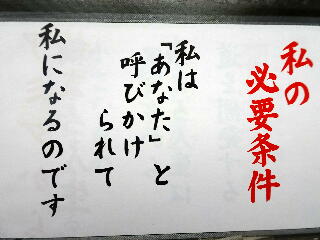 私の
必要条件
私は
「あなた」と
呼びかけ
られて
私になるのです